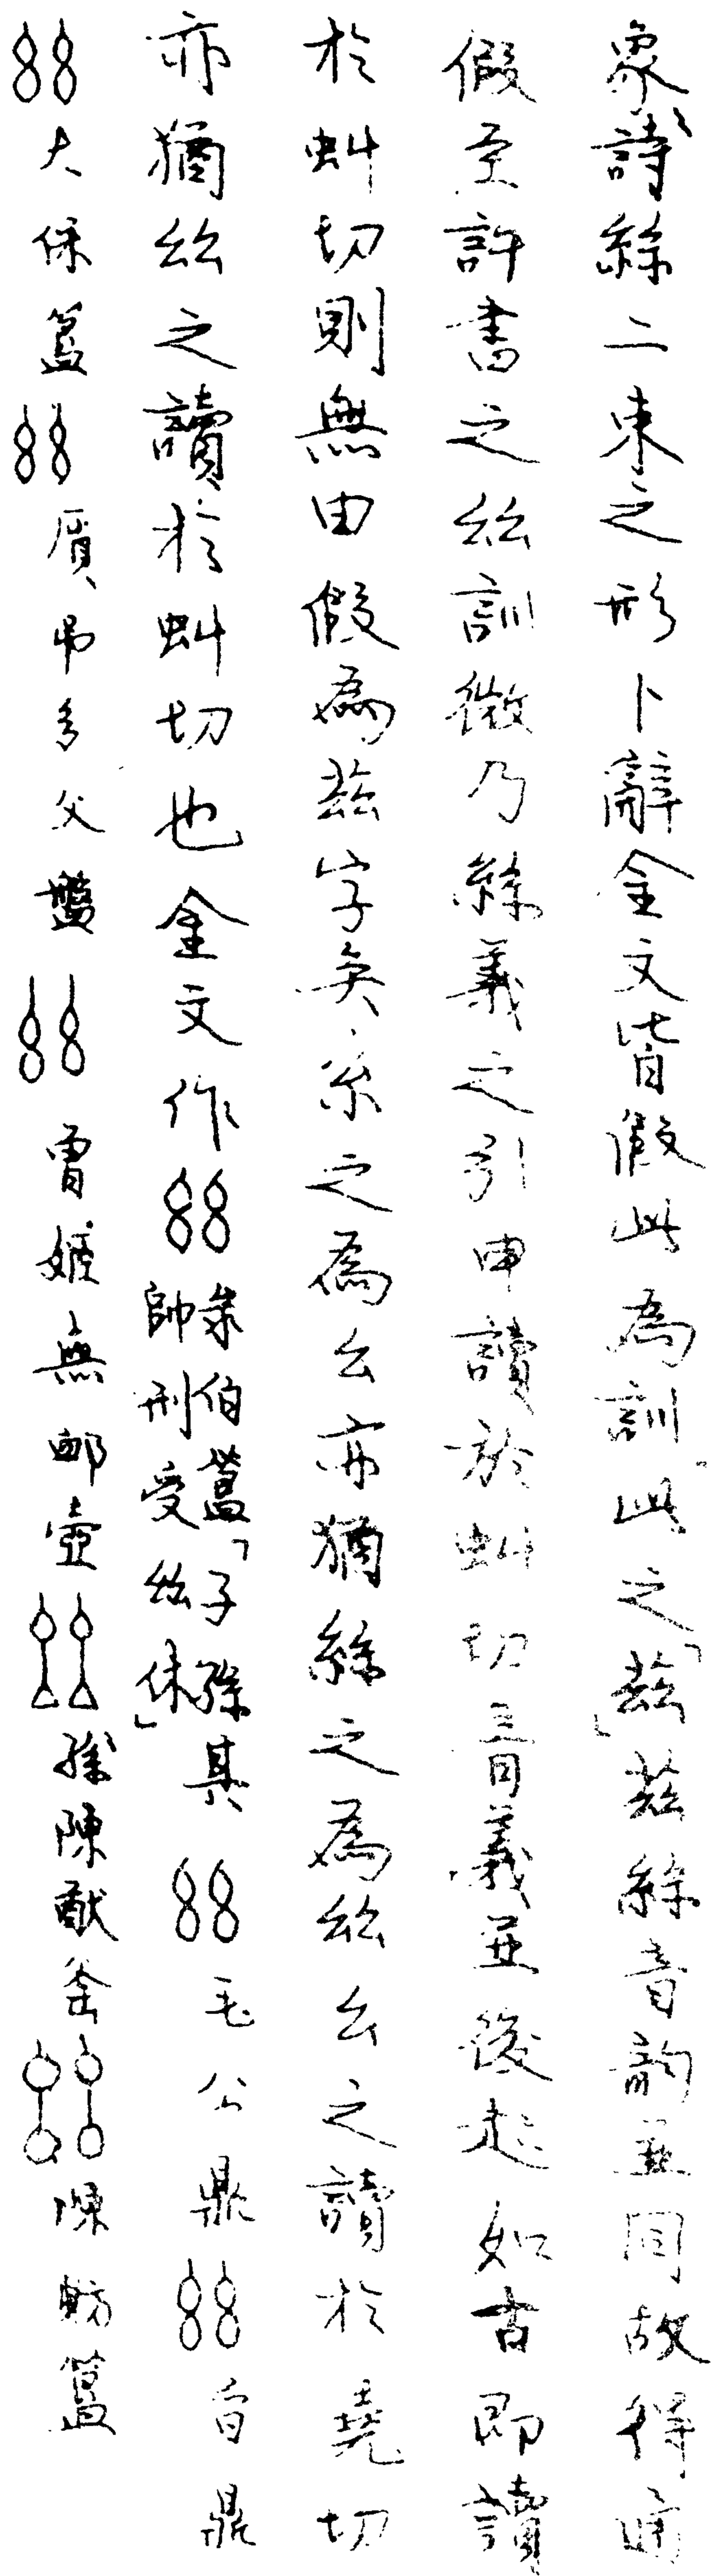 象詩絲二束之形卜辭金文皆假此為訓此之「茲」茲絲音韵並同故得通
假至許書之𢆶訓微乃絲義之引申讀於虯切音義並後起如古即讀
於虯切則無由假為茲字矣糸之為幺亦猶絲之為𢆶幺之讀於堯切
亦猶𢆶之讀於虯切也金文作𢆶彔伯簋「子孫其帥刑受𢆶休」𢆶毛公鼎𢆶曶鼎
𢆶大保簋𢆶弔多父盤𢆶曾姬無卹壺𢆶陳猷釜𢆶陳肪簋